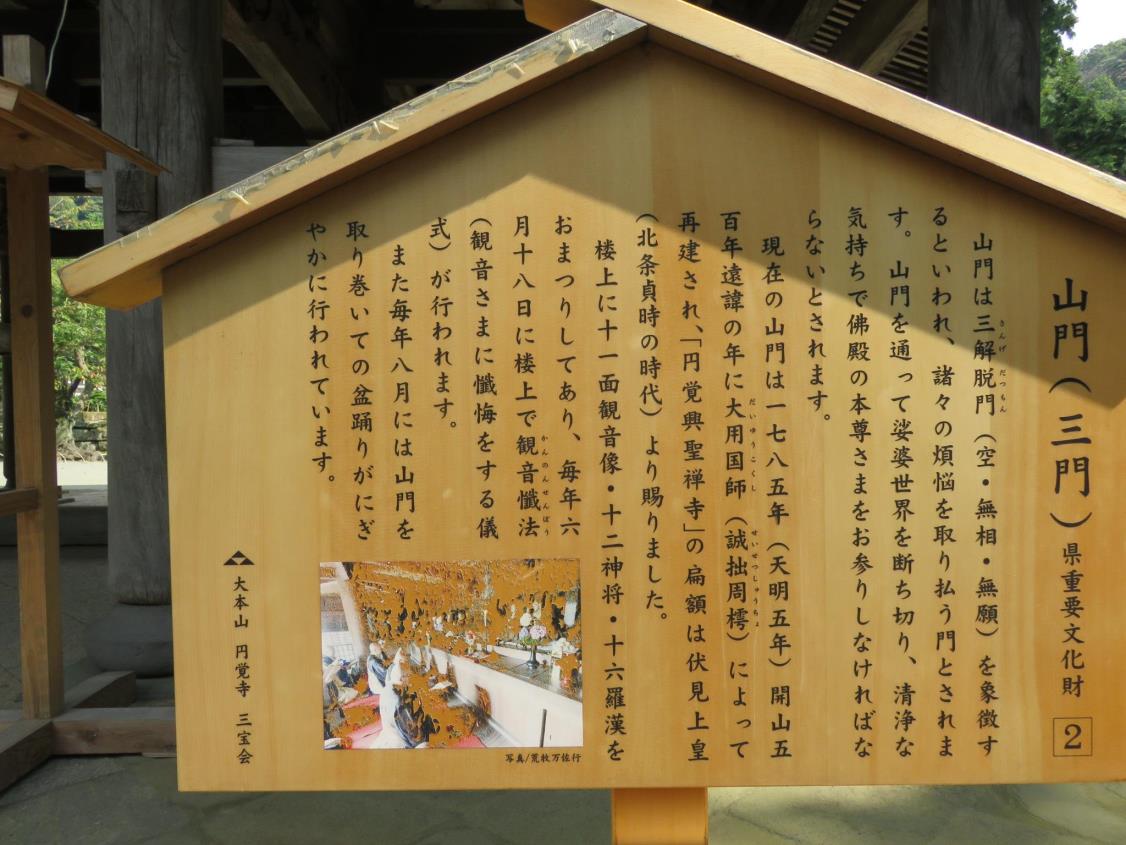 山門(三門) 県重要文化財 2
山門は三解脱門(空・無相・無願)を象徴す
さんげだつもん
るといわれ、諸々の煩悩を取り払う門とされま
す。山門を通って娑婆世界を断ち切り、清浄な
気持ちで佛殿の本尊さまをお参りしなければな
らないとされます。
現在の山門は一七八五年(天明五年)開山五
百年遠諱の年に大用国師(誠拙周樗)によって
だいゆうこくし せいせつしゅうちょ
再建され、「円覚興聖禅寺」の扁額は伏見上皇
(北条貞時の時代)より賜りました。
楼上に十一面観音像・十二神将・十六羅漢を
おまつりしてあり、毎年六
月十八日に楼上で観音懺法
かんのんせんぽう
(観音さまに懺悔をする儀
式)が行われます。
また毎年八月には山門を
取り巻いての盆踊りがにぎ
やかに行われています。
写真/荒牧万佐行
大本山 円覚寺 三宝会